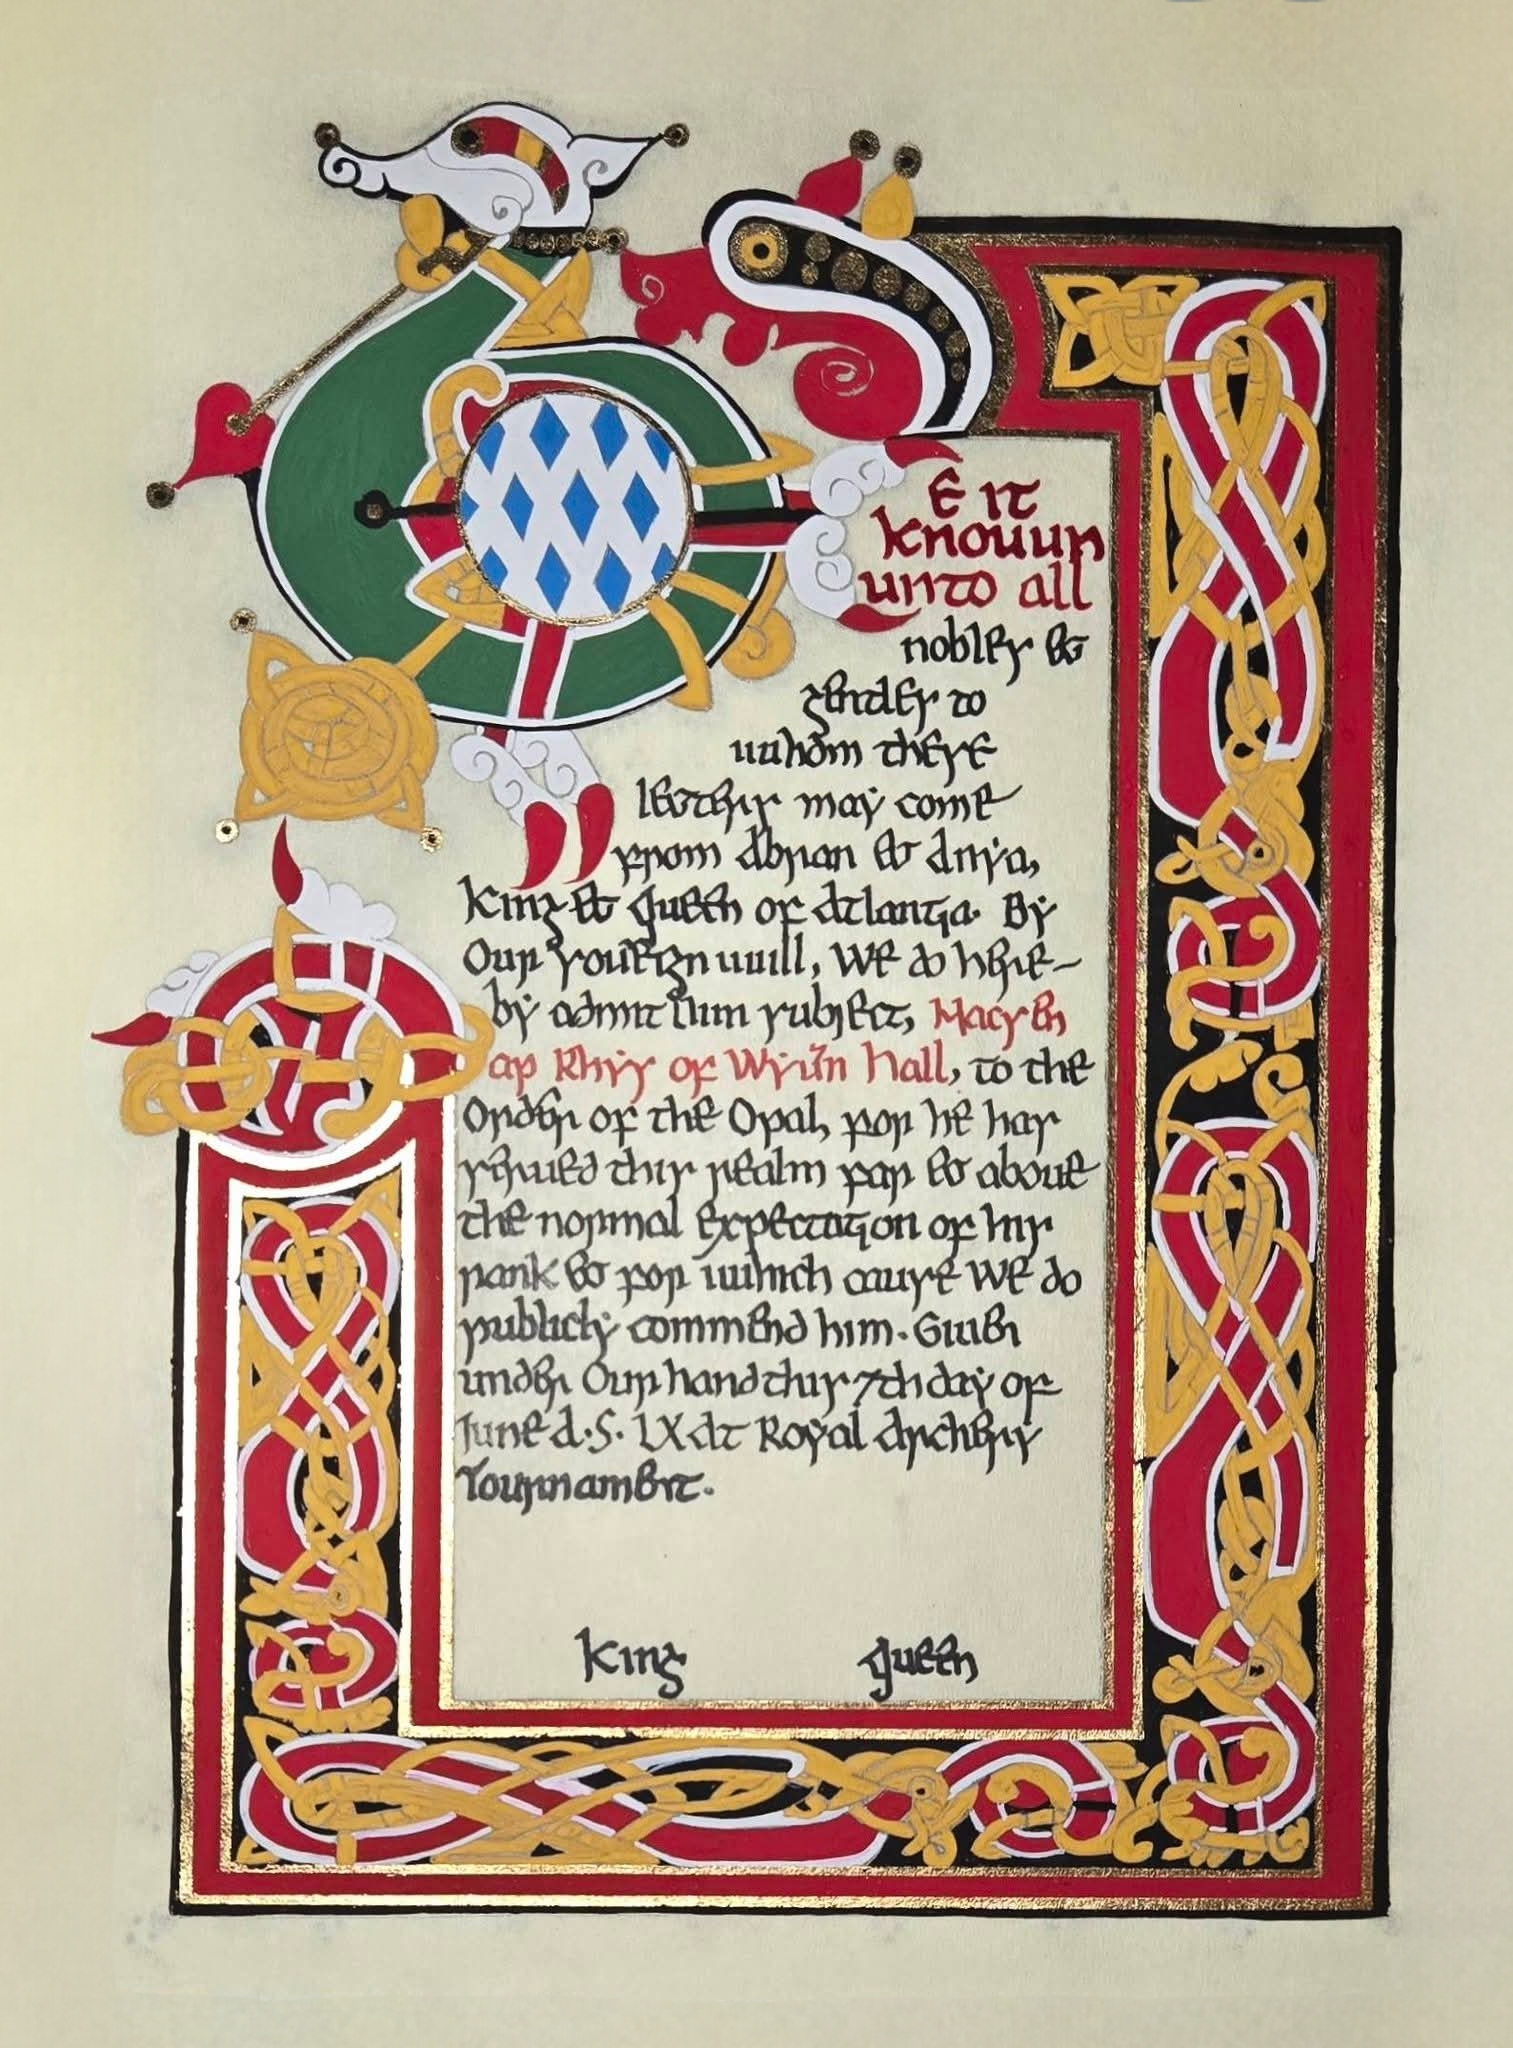 BE IT
Knouun
unto all
nobles &
gentles to
uuhom these
letters may come
from Abran & Anya,
King & Queen of Atlantia. By
Our souereign uuill, We do here-
by admit our subject, Macsen
ap Rhys of Wyuern Hall, to the
Order of the Opal, for he has
serued this realm far & aboue
the normal expectation of his
rank & for uuhich cause We do
publicly commend him. Giuen
under Our hand this 7th day of
June A.S. LX At Royal Archery
Tournament.
King Queen